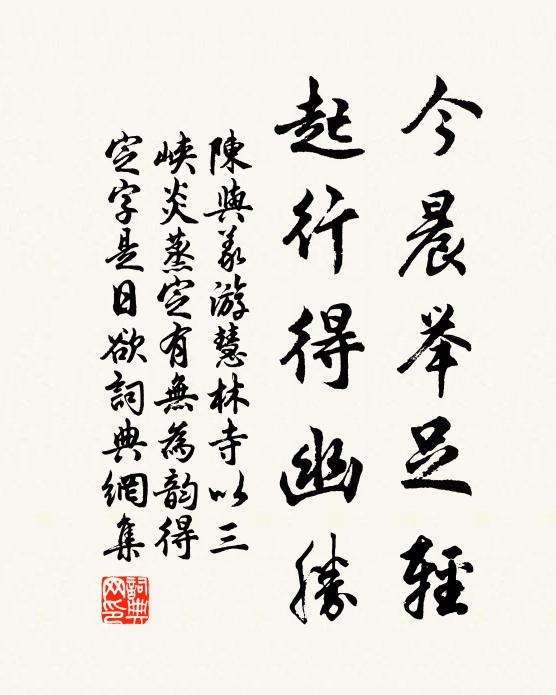 今晨举足輕
起行得幽勝
陳與義游慧林寺以三
峽炎蒸定有無為韵得
定字是日欲詞典網集
詞典网印